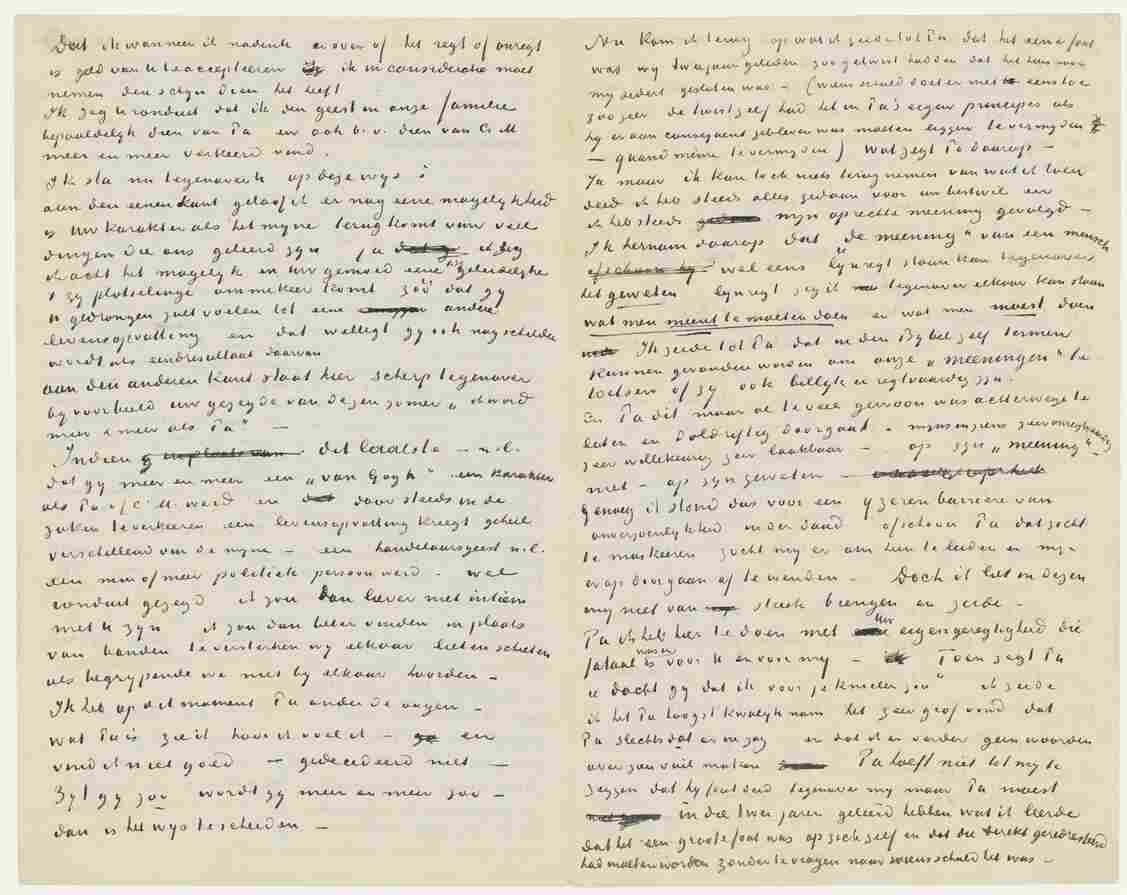 Dat ik wanneer ik nadenk er over of het regt of onregt
is geld van U te accepteeren ik in consideratie moet
nemen den schijn dien het heeft
Ik zeg U ronduit dat ik den geest in onze familie
bepaaldelijk dien van Pa en ook b.v. dien van C.M
meer en meer verkeerd vind.
Ik sta nu tegenover U op deze wijs :
aan den eenen kant geloof ik er nog eene mogelijkheid
is Uw karakter als het mijne terug komt van veel
dingen die ons geleerd zijn ja ik zeg
ik acht het mogelijk in Uw gemoed eene hetzij geleidelijke
't zij plotselinge ommekeer komt zóó dat gij
U gedrongen zult voelen tot eene andere
levensopvatting en dat welligt gij ook nog schilder
wordt als eindresultaat daarvan
aan den anderen kant staat hier scherp tegenover
bij voorbeeld uw gezegde van dezen zomer „ik word
meer & meer als Pa" —
Indien dit laatste — n.l.
dat gij meer en meer een „van Gogh" een karakter
als Pa of C.M. werd en door steeds in de
zaken te verkeeren een levensopvatting kreegt geheel
verschillend van de mijne — een handelaarsgeest n.l.
een min of meer politiek persoon werd — wel
ronduit gezegd ik zou dan liever niet intiem
met U zijn ik zou dan liever vinden in plaats
van banden te versterken wij elkaar lieten schieten
als begrijpende we niet bij elkaar hoorden —
Ik heb op dit moment Pa onder de oogen —
wat Pa is zie ik hoor ik voel ik — en
vind ik niet goed — gedecideerd niet —
Zijt gij zoo wordt gij meer en meer zoo —
dan is het wijs te scheiden —
Nu kom ik terug op wat ik zeide tot Pa dat het eene fout
was wij twee jaar geleden zoo getwist hadden dat het huis voor
mij sedert gesloten was — (wiens schuld doet er niet eens toe
zoozeer de twist zelf had het in Pa's eigen principes als
hij er aan consequent gebleven was moeten liggen te vermijden
— quand même te vermijden) Wat zegt Pa daarop —
Ja maar ik kan toch niets terug nemen van wat ik toen
deed ik heb steeds alles gedaan voor uw bestwil en
ik heb steeds mijn opregte meening gevolgd —
Ik hernam daarop dat „de meening" van een mensch
wel eens lijnregt staan kan tegenover
het geweten lijnregt zeg ik tegenover elkaar kan staan
wat men meent te moeten doen en wat men moest doen
Ik zeide tot Pa dat in den Bijbel zelf termen
kunnen gevonden worden om onze „meeningen" te
toetsen of zij ook billijk en regtvaardig zijn.
En Pa dit maar al te veel gewoon was achterwege te
laten en doldriftig doorgaat — mijns inziens zeer onregtvaardig
zeer willekeurig zeer laakbaar — op zijn „meening"
niet — op zijn geweten —
Genoeg ik stond dus voor een ijzeren barriere van
onverzoenlijkheid in der daad ofschoon Pa dat zocht
te maskeeren zocht mij er om heen te leiden en mijn
er op doorgaan af te wenden — Doch ik liet in dezen
mij niet van streek brengen en zeide —
Pa ik heb hier te doen met Uw eigengeregtigheid die
fataal was en is voor U en voor mij — Toen zegt Pa
„dacht gij dat ik voor je knielen zou" ik zeide
ik het Pa hoogst kwalijk nam het zeer grof vond dat
Pa slechts dat er in zag en dat ik er verder geen woorden
over zou vuil maken Pa hoeft niet tot mij te
zeggen dat hij fout deed tegenover mij maar Pa moest
in die twee jaren geleerd hebben wat ik leerde
dat het een groote fout was op zich zelf en dat die direkt geredresseerd
had moeten worden zonder te vragen naar wiens schuld het was —